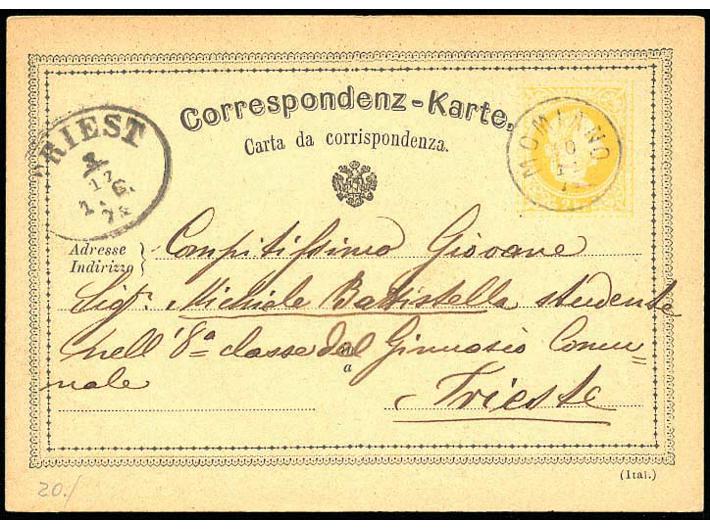 Correspondenz-Karte.
Carta da corrispondenza.
TRIEST
12
MOMIANO
Adresse
Indirizzo
Compitissimo Giovane
Sigr. Michiele Battistella studente
nell' 8a classe del Ginnasio Comu=
nale
a
Trieste
(Ital.)
20./